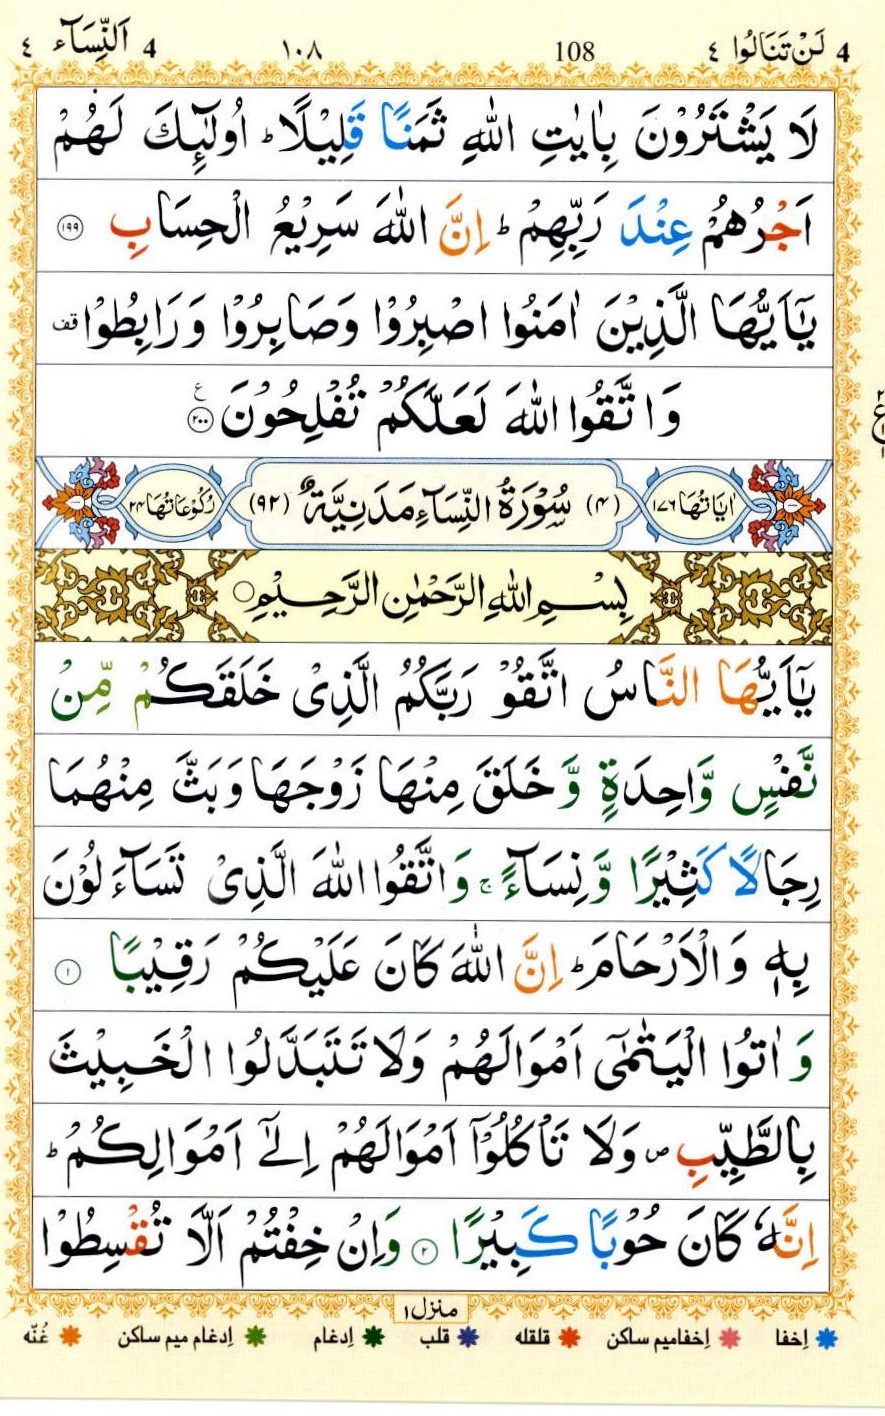 4 لَنْ تَنَالُوا ٤ 108 ١٠٨ 4 اَلنِّسَآء ٤
لَا يَشْتَرُوْنَ بِاٰيٰتِ اللّٰهِ ثَمَنًا قَلِيْلًا ؕ اُولٰٓئِكَ لَهُمْ
اَجْرُهُمْ عِنْدَ رَبِّهِمْ ؕ اِنَّ اللّٰهَ سَرِيْعُ الْحِسَابِ ۱۹۹
يٰٓاَيُّهَا الَّذِيْنَ اٰمَنُوا اصْبِرُوْا وَصَابِرُوْا وَرَابِطُوْا قف
وَاتَّقُوا اللّٰهَ لَعَلَّكُمْ تُفْلِحُوْنَ ع ۲۰۰
اٰيَاتُهَا ١٧٦ (٤) سُوْرَةُ النِّسَآءِ مَدَنِيَّةٌ (٩٢) رُكُوْعَاتُهَا ٢٤
بِسْمِ اللّٰهِ الرَّحْمٰنِ الرَّحِيْمِ
يٰٓاَيُّهَا النَّاسُ اتَّقُوْا رَبَّكُمُ الَّذِىْ خَلَقَكُمْ مِّنْ
نَّفْسٍ وَّاحِدَةٍ وَّخَلَقَ مِنْهَا زَوْجَهَا وَبَثَّ مِنْهُمَا
رِجَالًا كَثِيْرًا وَّنِسَآءً ۚ وَاتَّقُوا اللّٰهَ الَّذِىْ تَسَآءَلُوْنَ
بِهٖ وَالْاَرْحَامَ ؕ اِنَّ اللّٰهَ كَانَ عَلَيْكُمْ رَقِيْبًا ۱
وَاٰتُوا الْيَتٰمٰٓى اَمْوَالَهُمْ وَلَا تَتَبَدَّلُوا الْخَبِيْثَ
بِالطَّيِّبِ ص وَلَا تَاْكُلُوْٓا اَمْوَالَهُمْ اِلٰٓى اَمْوَالِكُمْ ؕ
اِنَّهٗ كَانَ حُوْبًا كَبِيْرًا ۲ وَاِنْ خِفْتُمْ اَلَّا تُقْسِطُوْا
منزل ١
اِخفا اِخفامیم ساکن قلقله قلب اِدغام اِدغام میم ساکن غُنّه